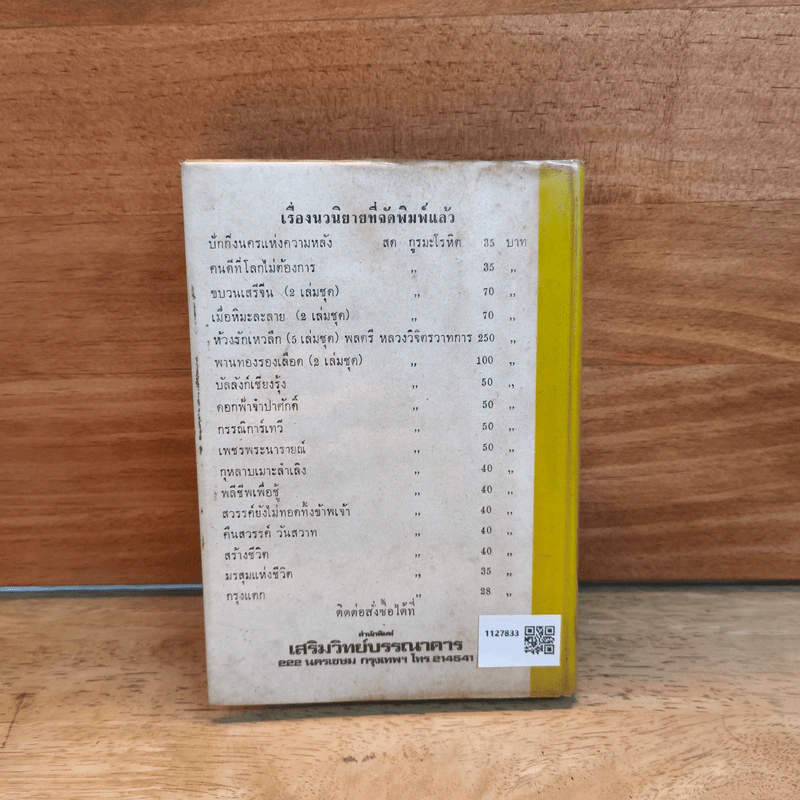 เรื่องนวนิยายที่จัดพิมพ์แล้ว
ปักกิ่งนครแห่งความหลัง สด กูรมะโรหิต 35 บาท
คนดีที่โลกไม่ต้องการ ,, 35 ,,
ขบวนเสรีจีน (2 เล่มชุด) ,, 70 ,,
เมื่อหิมะละลาย (2 เล่มชุด) ,, 70 ,,
ห้วงรักเหวลึก (5 เล่มชุด) พลตรี หลวงวิจิตรวาทการ 250 ,,
พานทองรองเลือด (2 เล่มชุด) ,, 100 ,,
บัลลังก์เชียงรุ้ง ,, 50 ,,
ดอกฟ้าจำปาศักดิ์ ,, 50 ,,
กรรณิการ์เทวี ,, 50 ,,
เพชรพระนารายณ์ ,, 50 ,,
กุหลาบเมาะลำเลิง ,, 40 ,,
พลีชีพเพื่อชู้ ,, 40 ,,
สวรรค์ยังไม่ทอดทิ้งข้าพเจ้า ,, 40 ,,
คืนสวรรค์ วันสวาท ,, 40 ,,
สร้างชีวิต ,, 40 ,,
มรสุมแห่งชีวิต ,, 35 ,,
กรุงแตก ,, 28 ,,
ติดต่อสั่งซื้อได้ที่
สำนักพิมพ์
เสริมวิทย์บรรณาคาร
222 นครเขษม กรุงเทพฯ โทร 214541
1127833